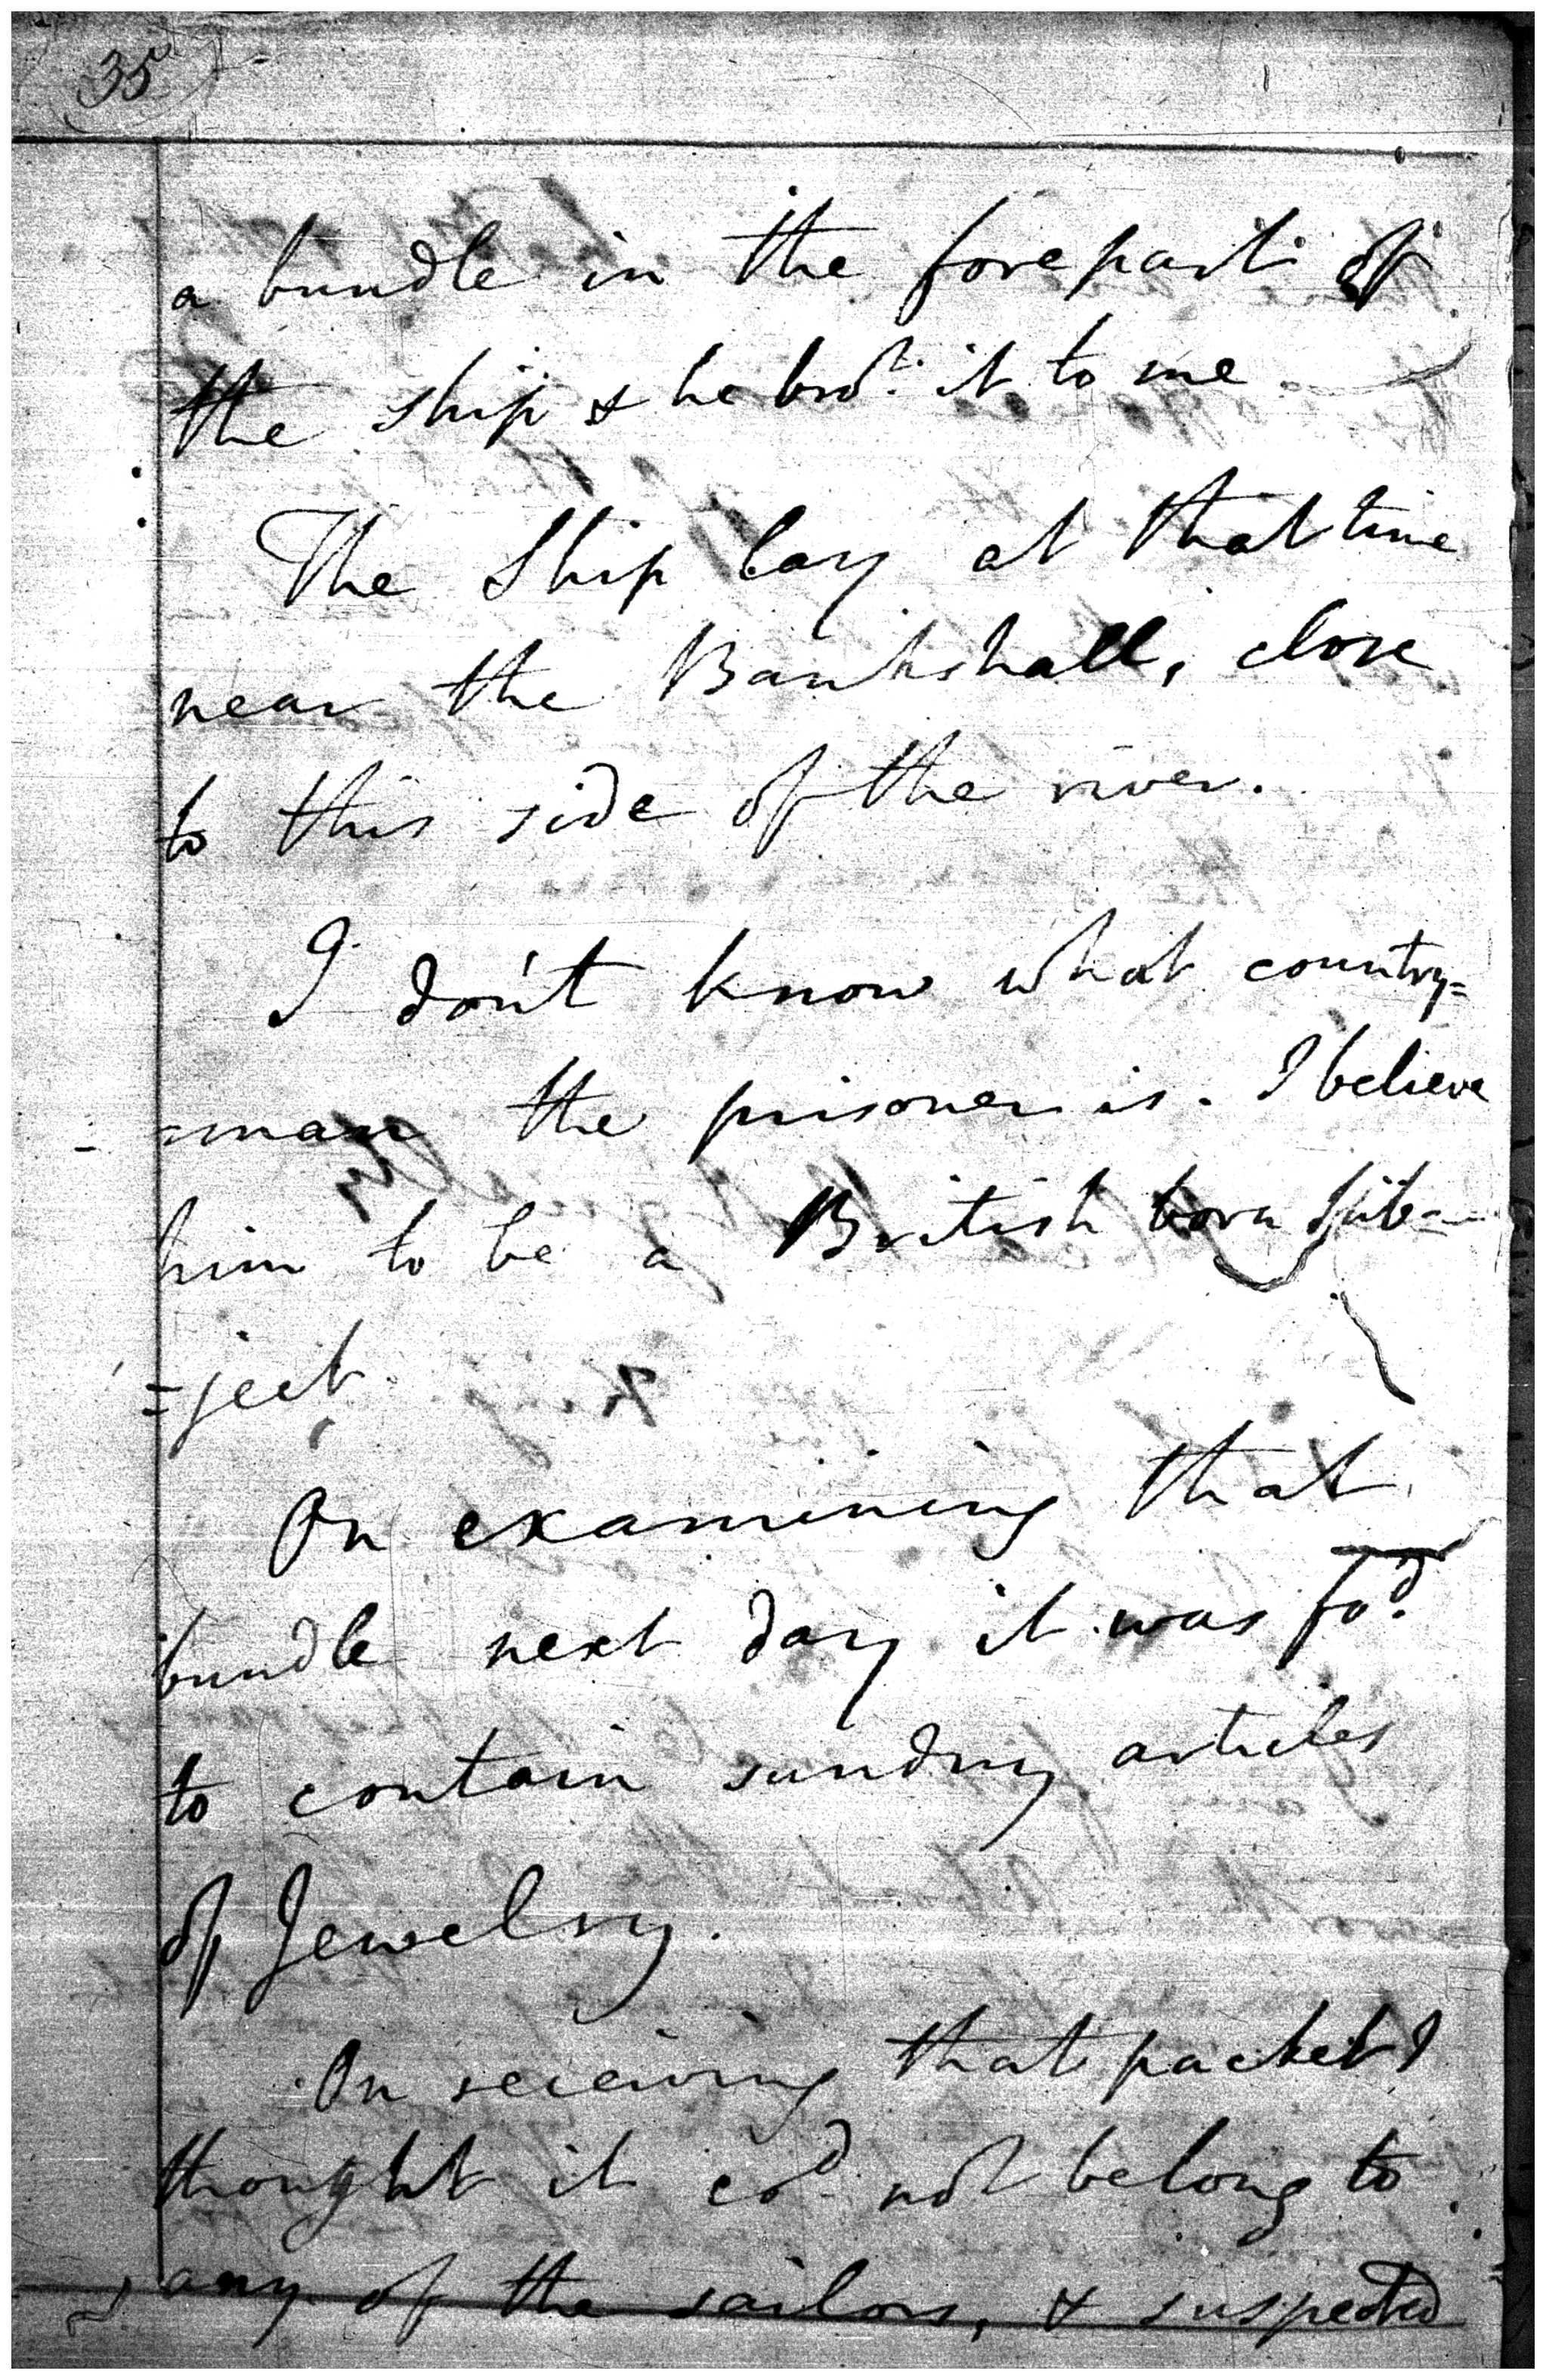 35
a bundle in the forepart of
the ship & he bro.t it to me.
The Ship lay at that time
near the Bankshall, close
to this side of the river.
I don't know what country=
=man the prisoner is. I believe
him to be a British born sub=
=ject.
On examining that
bundle next day it was fo.d
to contain sundry articles
of Jewelry.
On receiving that packet I
thought it co.d not belong to
any of the sailors, & suspected